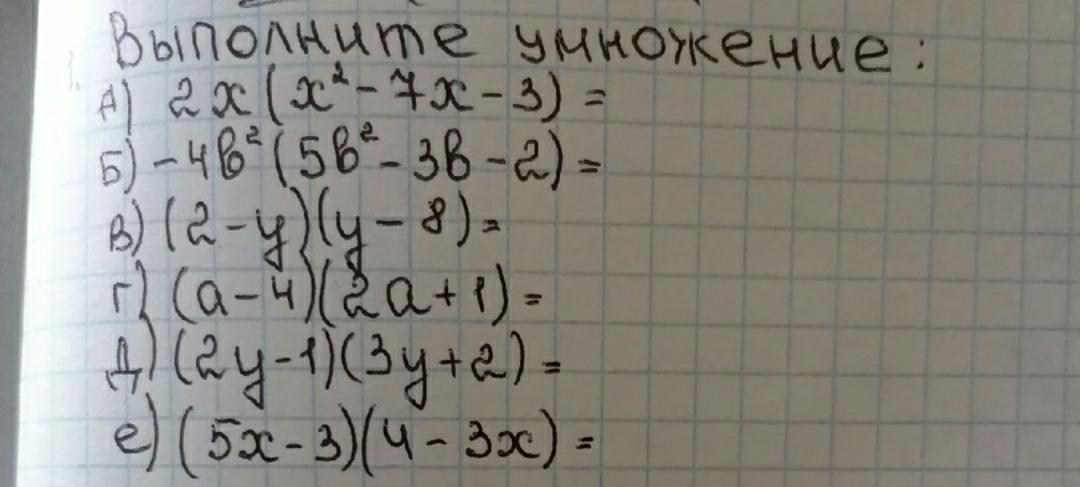 Выполните умножение:
А) 2x(x²-7x-3)=
Б) -4в²(5в²-3в-2)=
В) (2-y)(y-8)=
Г) (a-4)(2a+1)=
Д) (2y-1)(3y+2)=
е) (5x-3)(4-3x)=